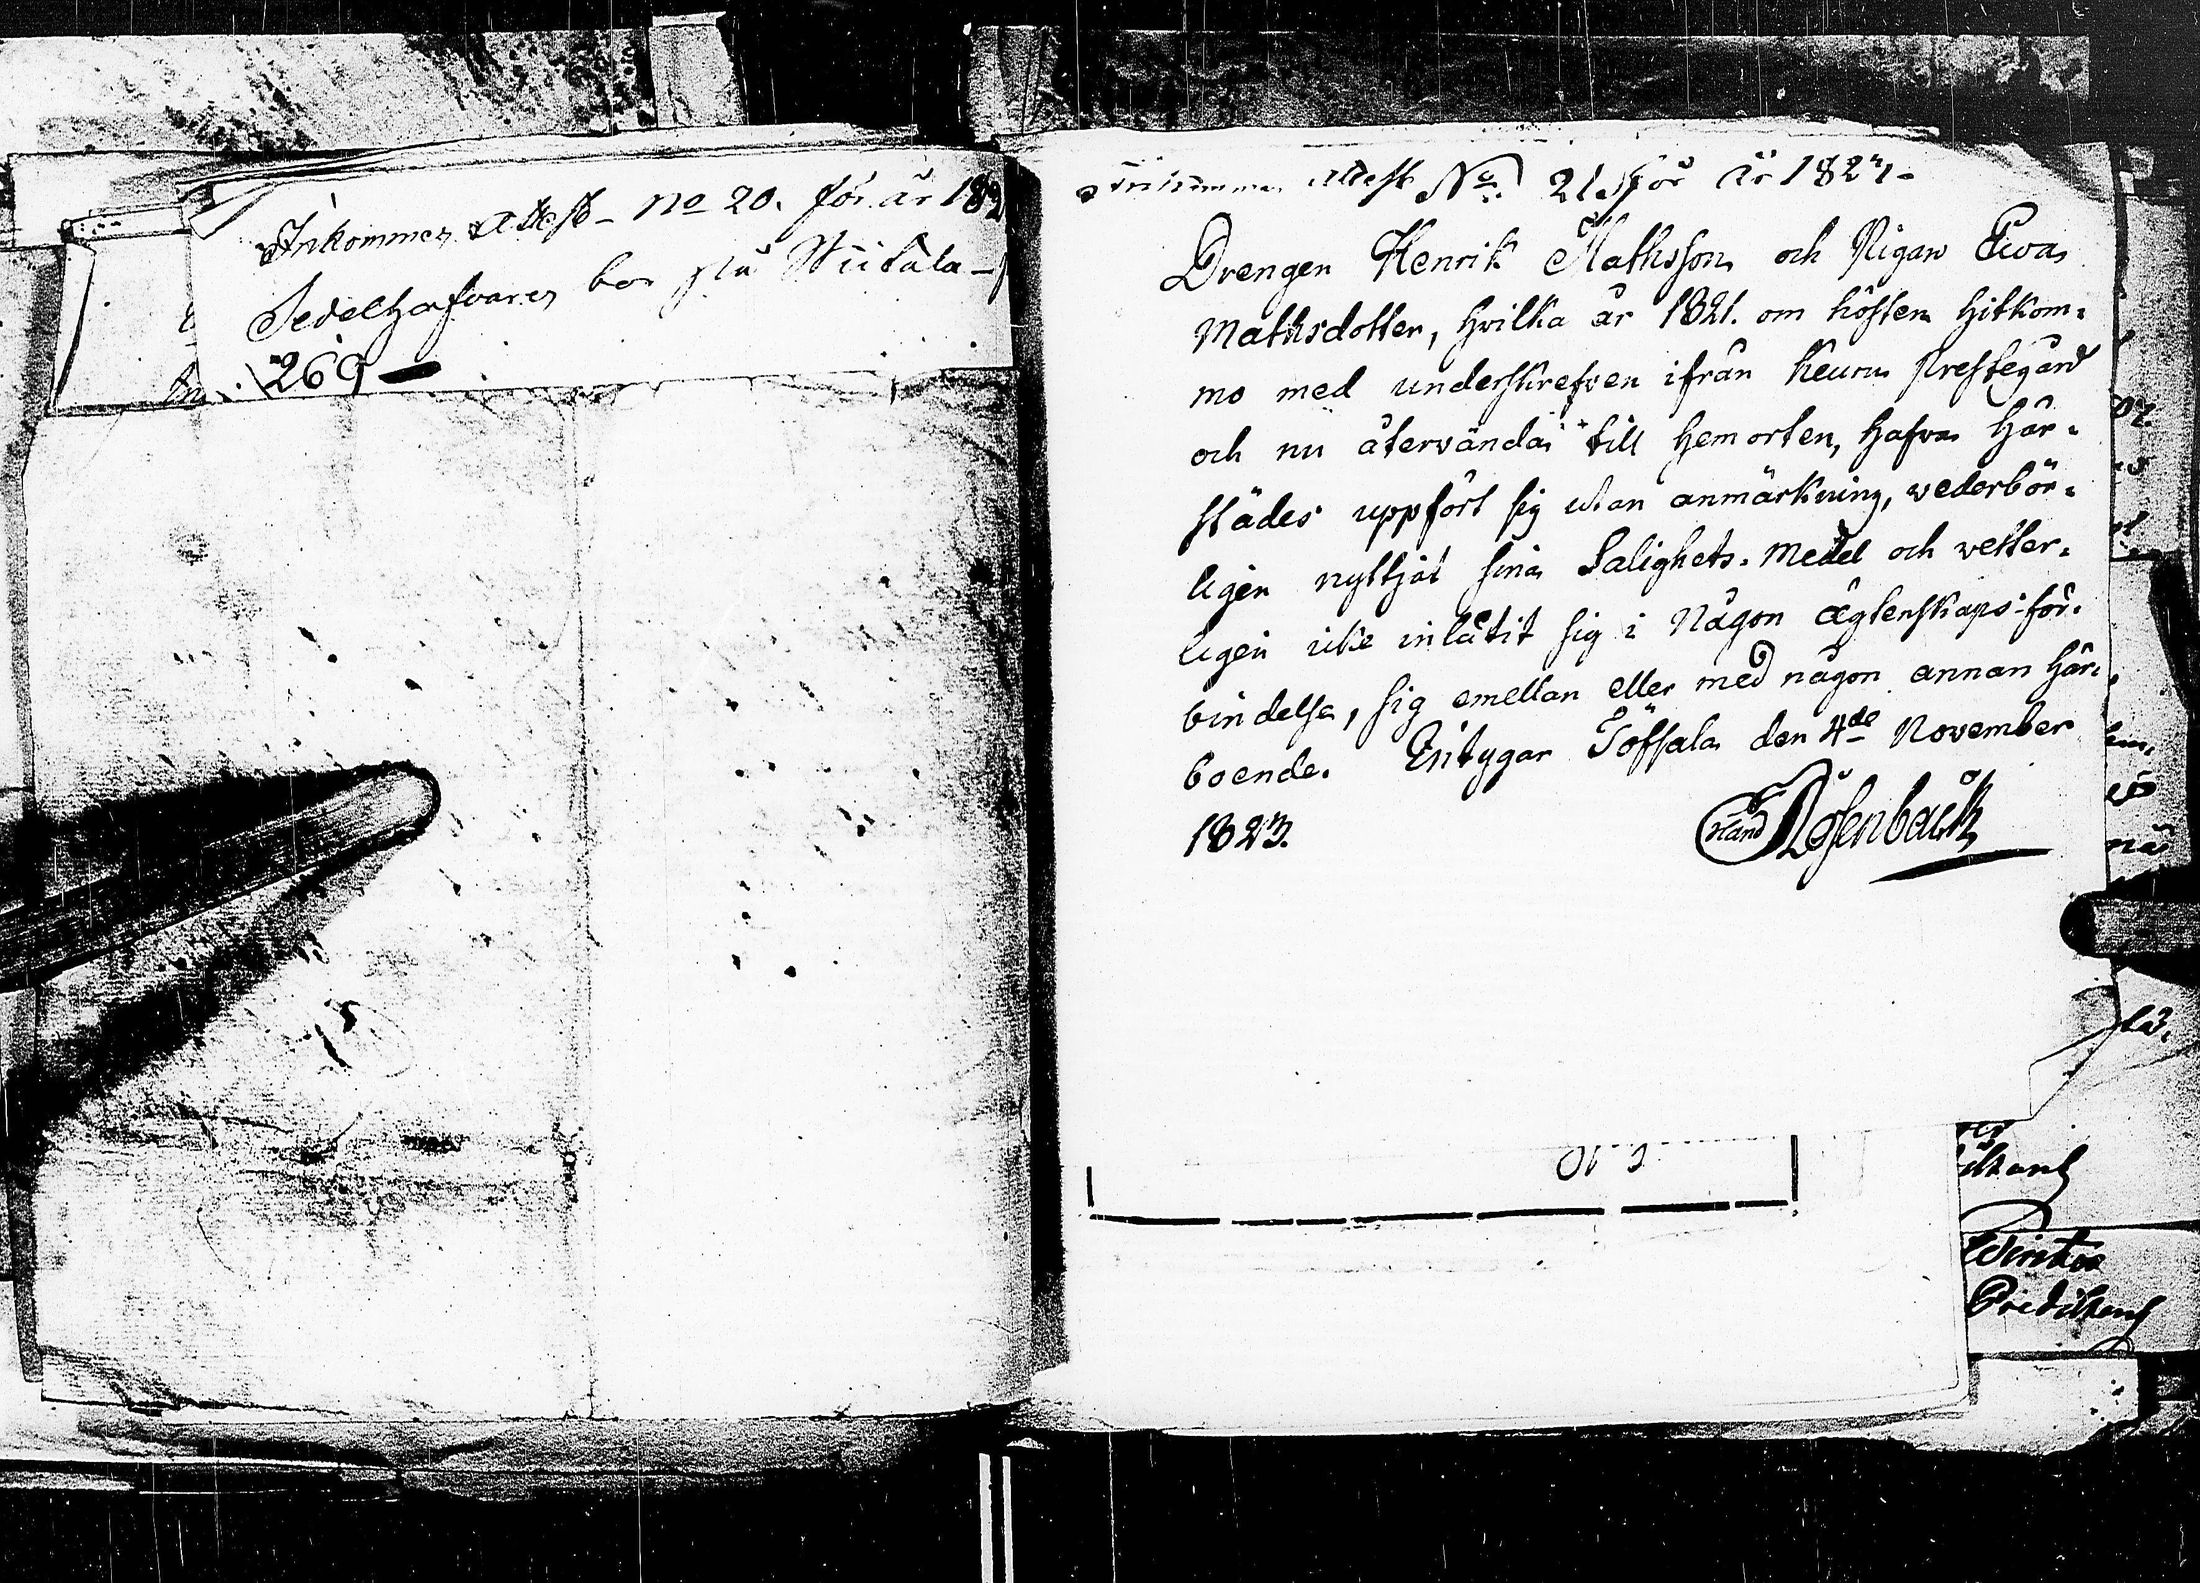 Inkommen Attest No 20. för år 182
Sedelhafvaren bor på
269
Inkommen Attest No. 21 för år 1824.
Drengen Henrik Mathsson och Pigan Ewa
Mathsdotter, hvilka år 1821. om hösten hitkom-
mo med underskrefven ifrån Keuru Prestegård
och nu återvända till hemorten, hafva här-
städes uppfört sig utan anmärkning, vederbör-
ligen nyttjat sina Salighets-Medel och vetter-
ligen icke inlåtit sig i någon ägtenskaps-för-
bindelse, sig emellan eller med någon annan här-
boende. Intygar Töfsala den 4de November
1823.
Rosenback